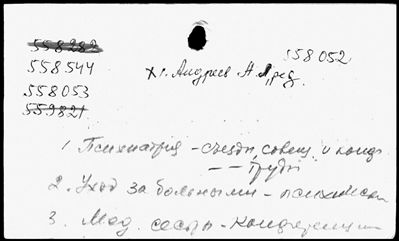 558282
558544
558053
559821
558052
х1. Андреев А.А., ред.
1 Психиатрия - съезды, совещ. и конф.
— — - Труды
2. Уход за больными - психич
3. Мед. сестры - конференции